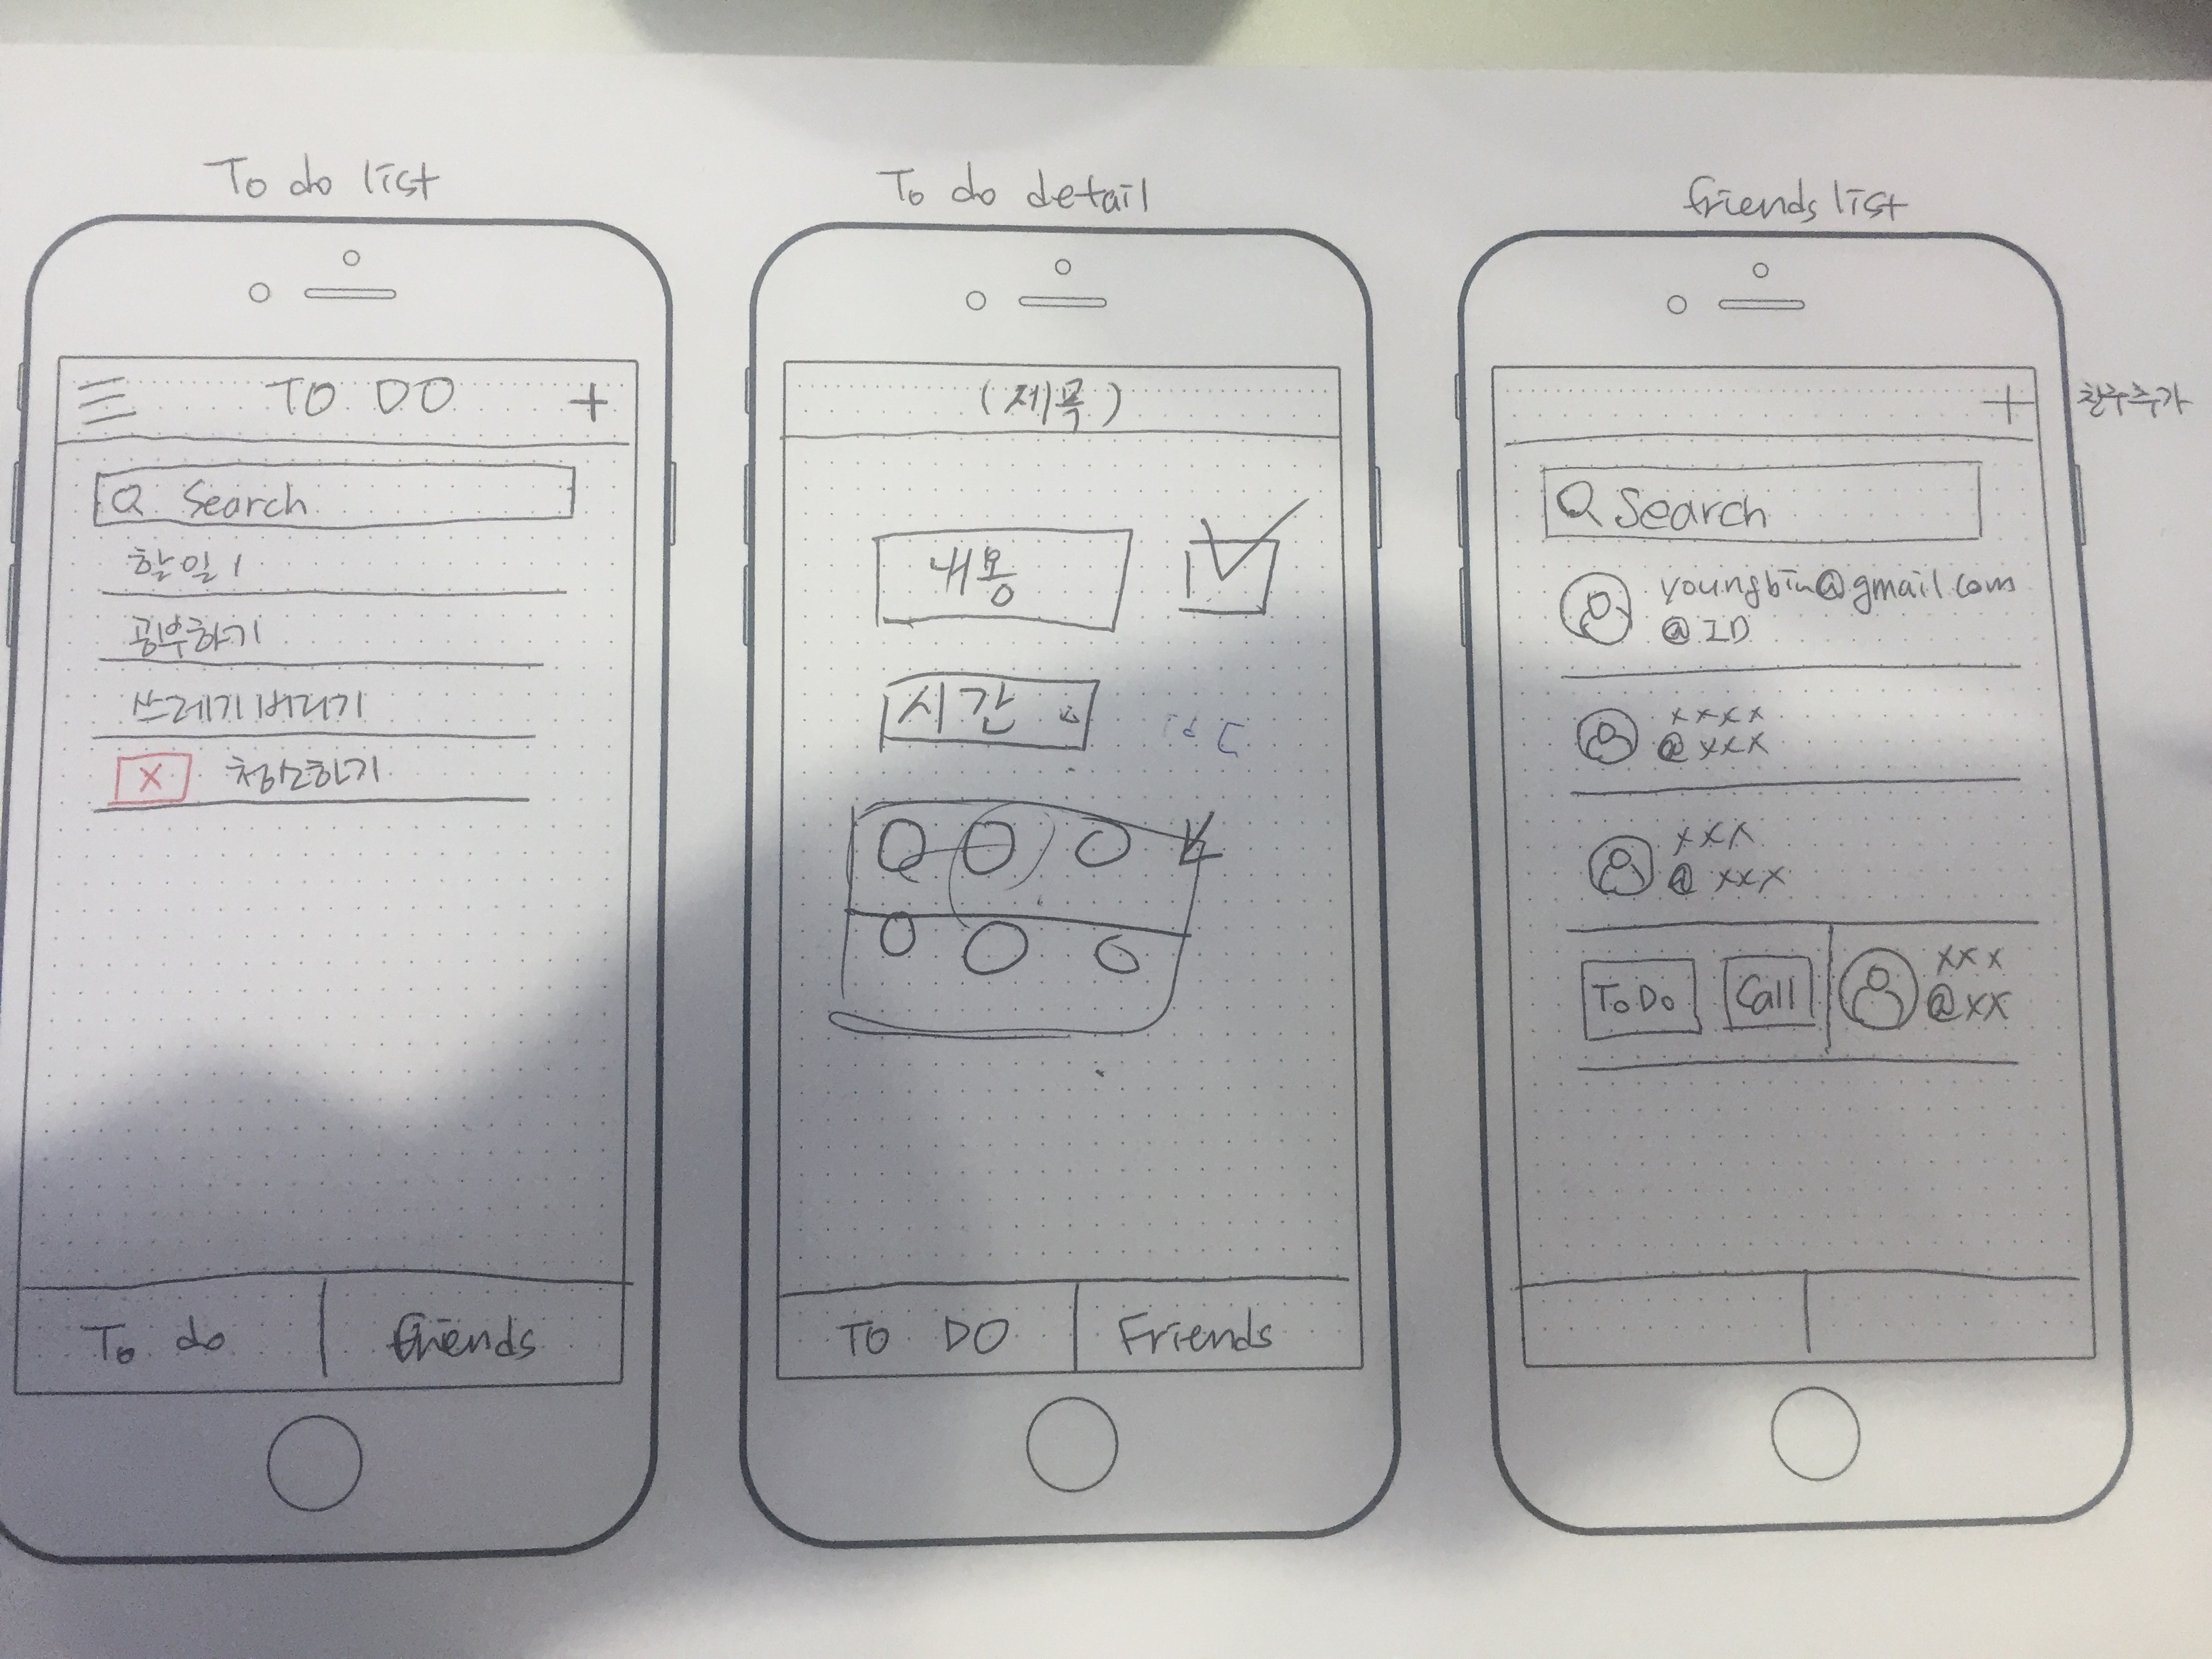 To do list
TO DO +
Search
할일 1
공부하기
쓰레기 버리기
X 청소하기
To do
Friends
To do detail
(제목)
내용
시간
TO DO
Friends
friends list
+ 친구추가
Search
youngbin@gmail.com
@ ID
xxxx
@ xxx
xxx
@ xxx
To Do
Call
xxx
@ xx